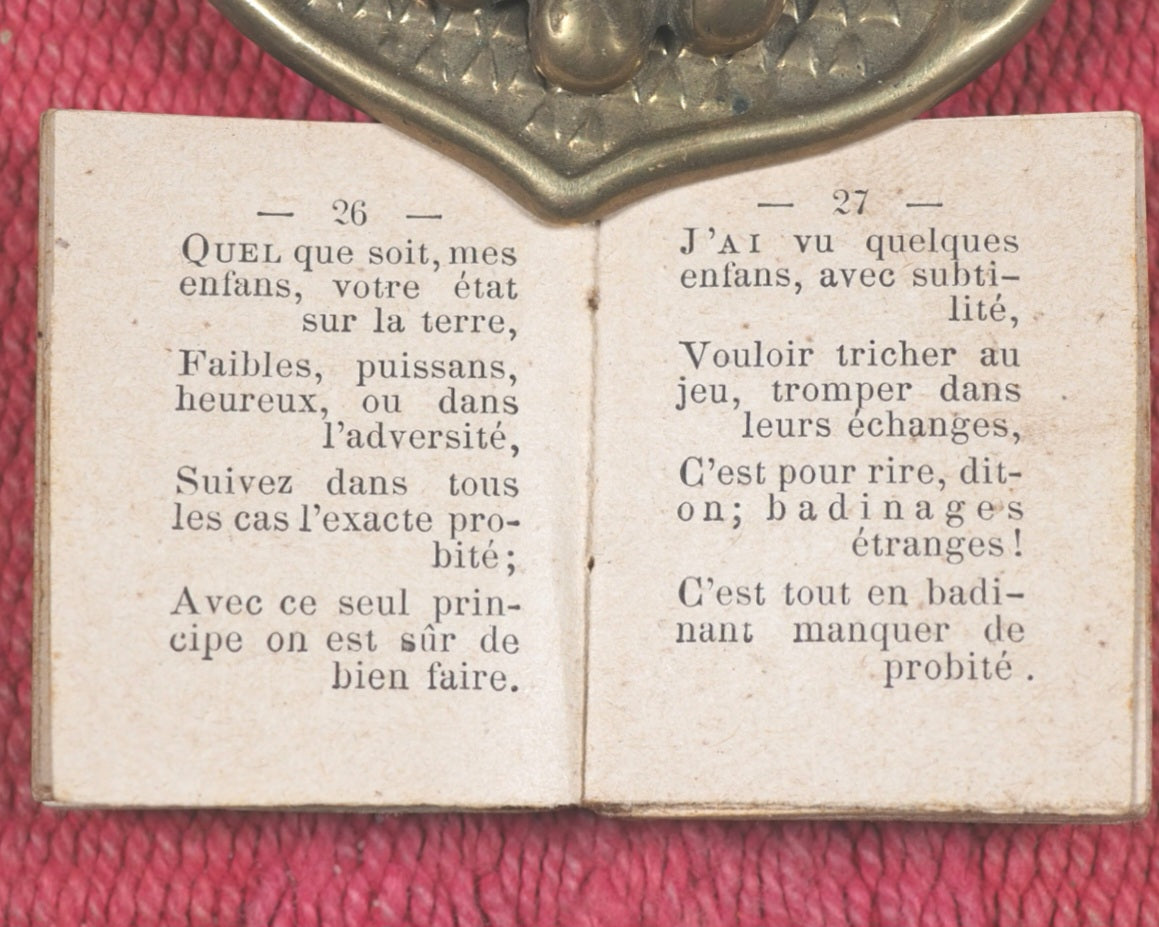 — 26 —
QUEL que soit, mes
enfans, votre état
sur la terre,
Faibles, puissans,
heureux, ou dans
l'adversité,
Suivez dans tous
les cas l'exacte pro-
bité;
Avec ce seul prin-
cipe on est sûr de
bien faire.
— 27 —
J'AI vu quelques
enfans, avec subti-
lité,
Vouloir tricher au
jeu, tromper dans
leurs échanges,
C'est pour rire, dit-
on; badinages
étranges!
C'est tout en badi-
nant manquer de
probité.